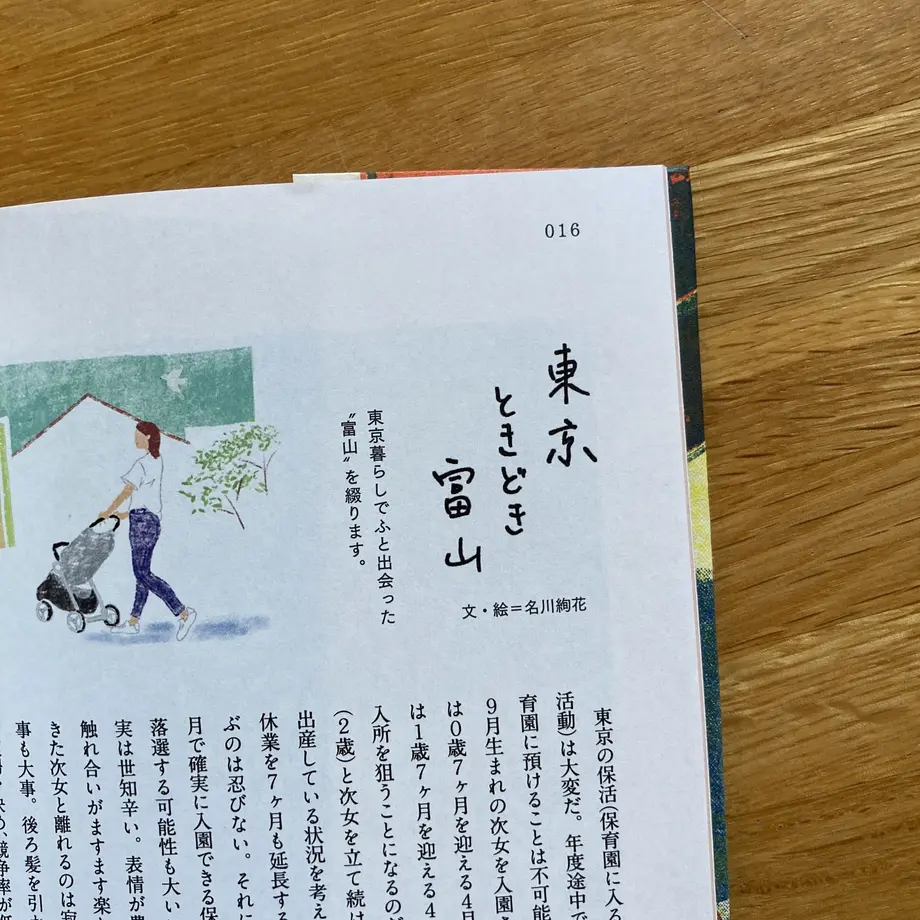 016
東京
ときどき
富山
東京暮らしでふと出会った
〝富山〟を綴ります。
文・絵＝名川絢花
東京の保活（保育園に入る
活動）は大変だ。年度途中で
育園に預けることは不可能
9月生まれの次女を入園
は0歳7ヶ月を迎える4月
は1歳7ヶ月を迎える4
入所を狙うことになるのだ
（2歳）と次女を立て続け
出産している状況を考え
休業を7ヶ月も延長する
ぶのは忍びない。それに
月で確実に入園できる保
落選する可能性も大い
実は世知辛い。表情が豊
触れ合いがますます楽
きた次女と離れるのは寂
事も大事。後ろ髪を引
競争率が